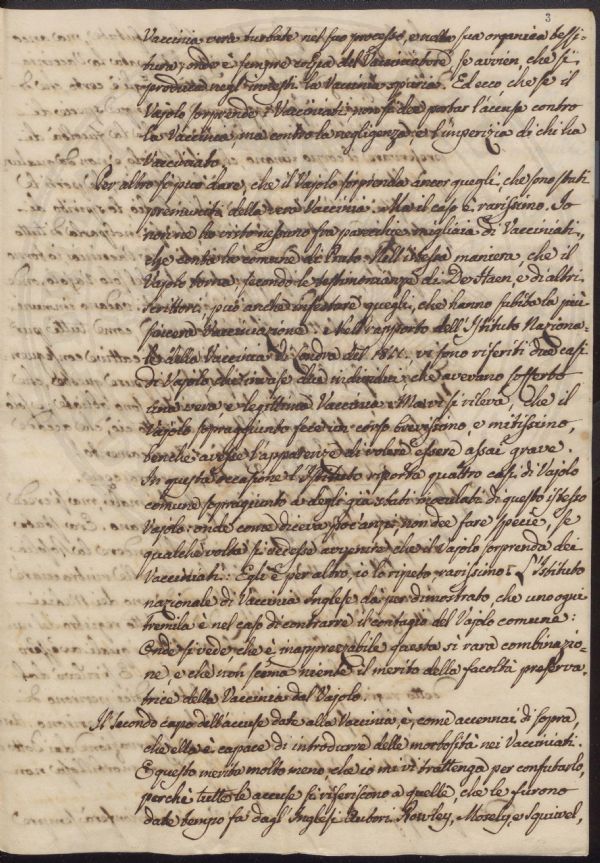 3
Vaccinia vera turbate nel suo processo, e nella sua organica tessi-
tura; onde è sempre colpa del Vaccinatore se avvien, che si
produca negl'innesti la Vaccinia spuria. Ed ecco che se il
Vajolo sorprende i Vaccinati non si dee portar l'accusa contro
la Vaccinia, ma contro la negligenza, e l'imperizia di chi ha
Vaccinato.
Per altro si può dare, che il Vajolo sorprenda ancor quegli, che sono stati
premuniti della vera Vaccinia. Ma il caso è rarissimo. Io
non ne ho visto nessuno fra parecchie migliaia di Vacciniati,
che conta la comune di Prato. Nell'istessa maniera, che il
Vajolo torna, secondo le testimonianze di De Haen, e di altri
scrittori; può anche infestare quegli, che hanno subita la più
sincera Vaccinazione: e nell'rapporto dell'Istituto Naziona-
le della Vaccinia di Londra del 1811. vi sono riferiti due casi
di Vajolo che invase due individui, che avevano sofferto
una vera e legittima Vaccinia. Ma vi si rileva che il
Vajolo sopraggiunto fece un corso brevissimo, e mitissimo,
benchè avesse l'apparenza di volere essere assai grave.
In questa occasione l'Istituto riporta quattro casi di Vajolo
comune sopragiunto a degli già stati inoculati di questo istesso
Vajolo: onde come diceva poc'anzi non dee fare specie, se
qualche volta si vedesse avvenire che il Vajolo sorprenda dei
Vacciniati: Egli è per altro, io lo ripeto, rarissimo. L'Istituto
nazionale di Vaccinia Inglese dà per dimostrato, che uno ogni
tremila è nel caso di contrarre il contagio del Vajolo comune:
Onde si vede, che è inapprezzabile questa sì rara combinazio-
ne, e che non scema niente il merito della facoltà preserva-
trice della Vaccinia dal Vajolo.
Il secondo capo dell'accuse date alla Vaccinia è, come accennai di sopra,
che ella è capace di introdurre delle morbosità nei Vacciniati.
E questo merita molto meno, che io mi vi trattenga per confutarlo,
perchè tutte le accuse si riferiscono a quelle, che le furono
date tempo fa dagl'Inglesi Autori Rowley, Mosely, e Squirrel,